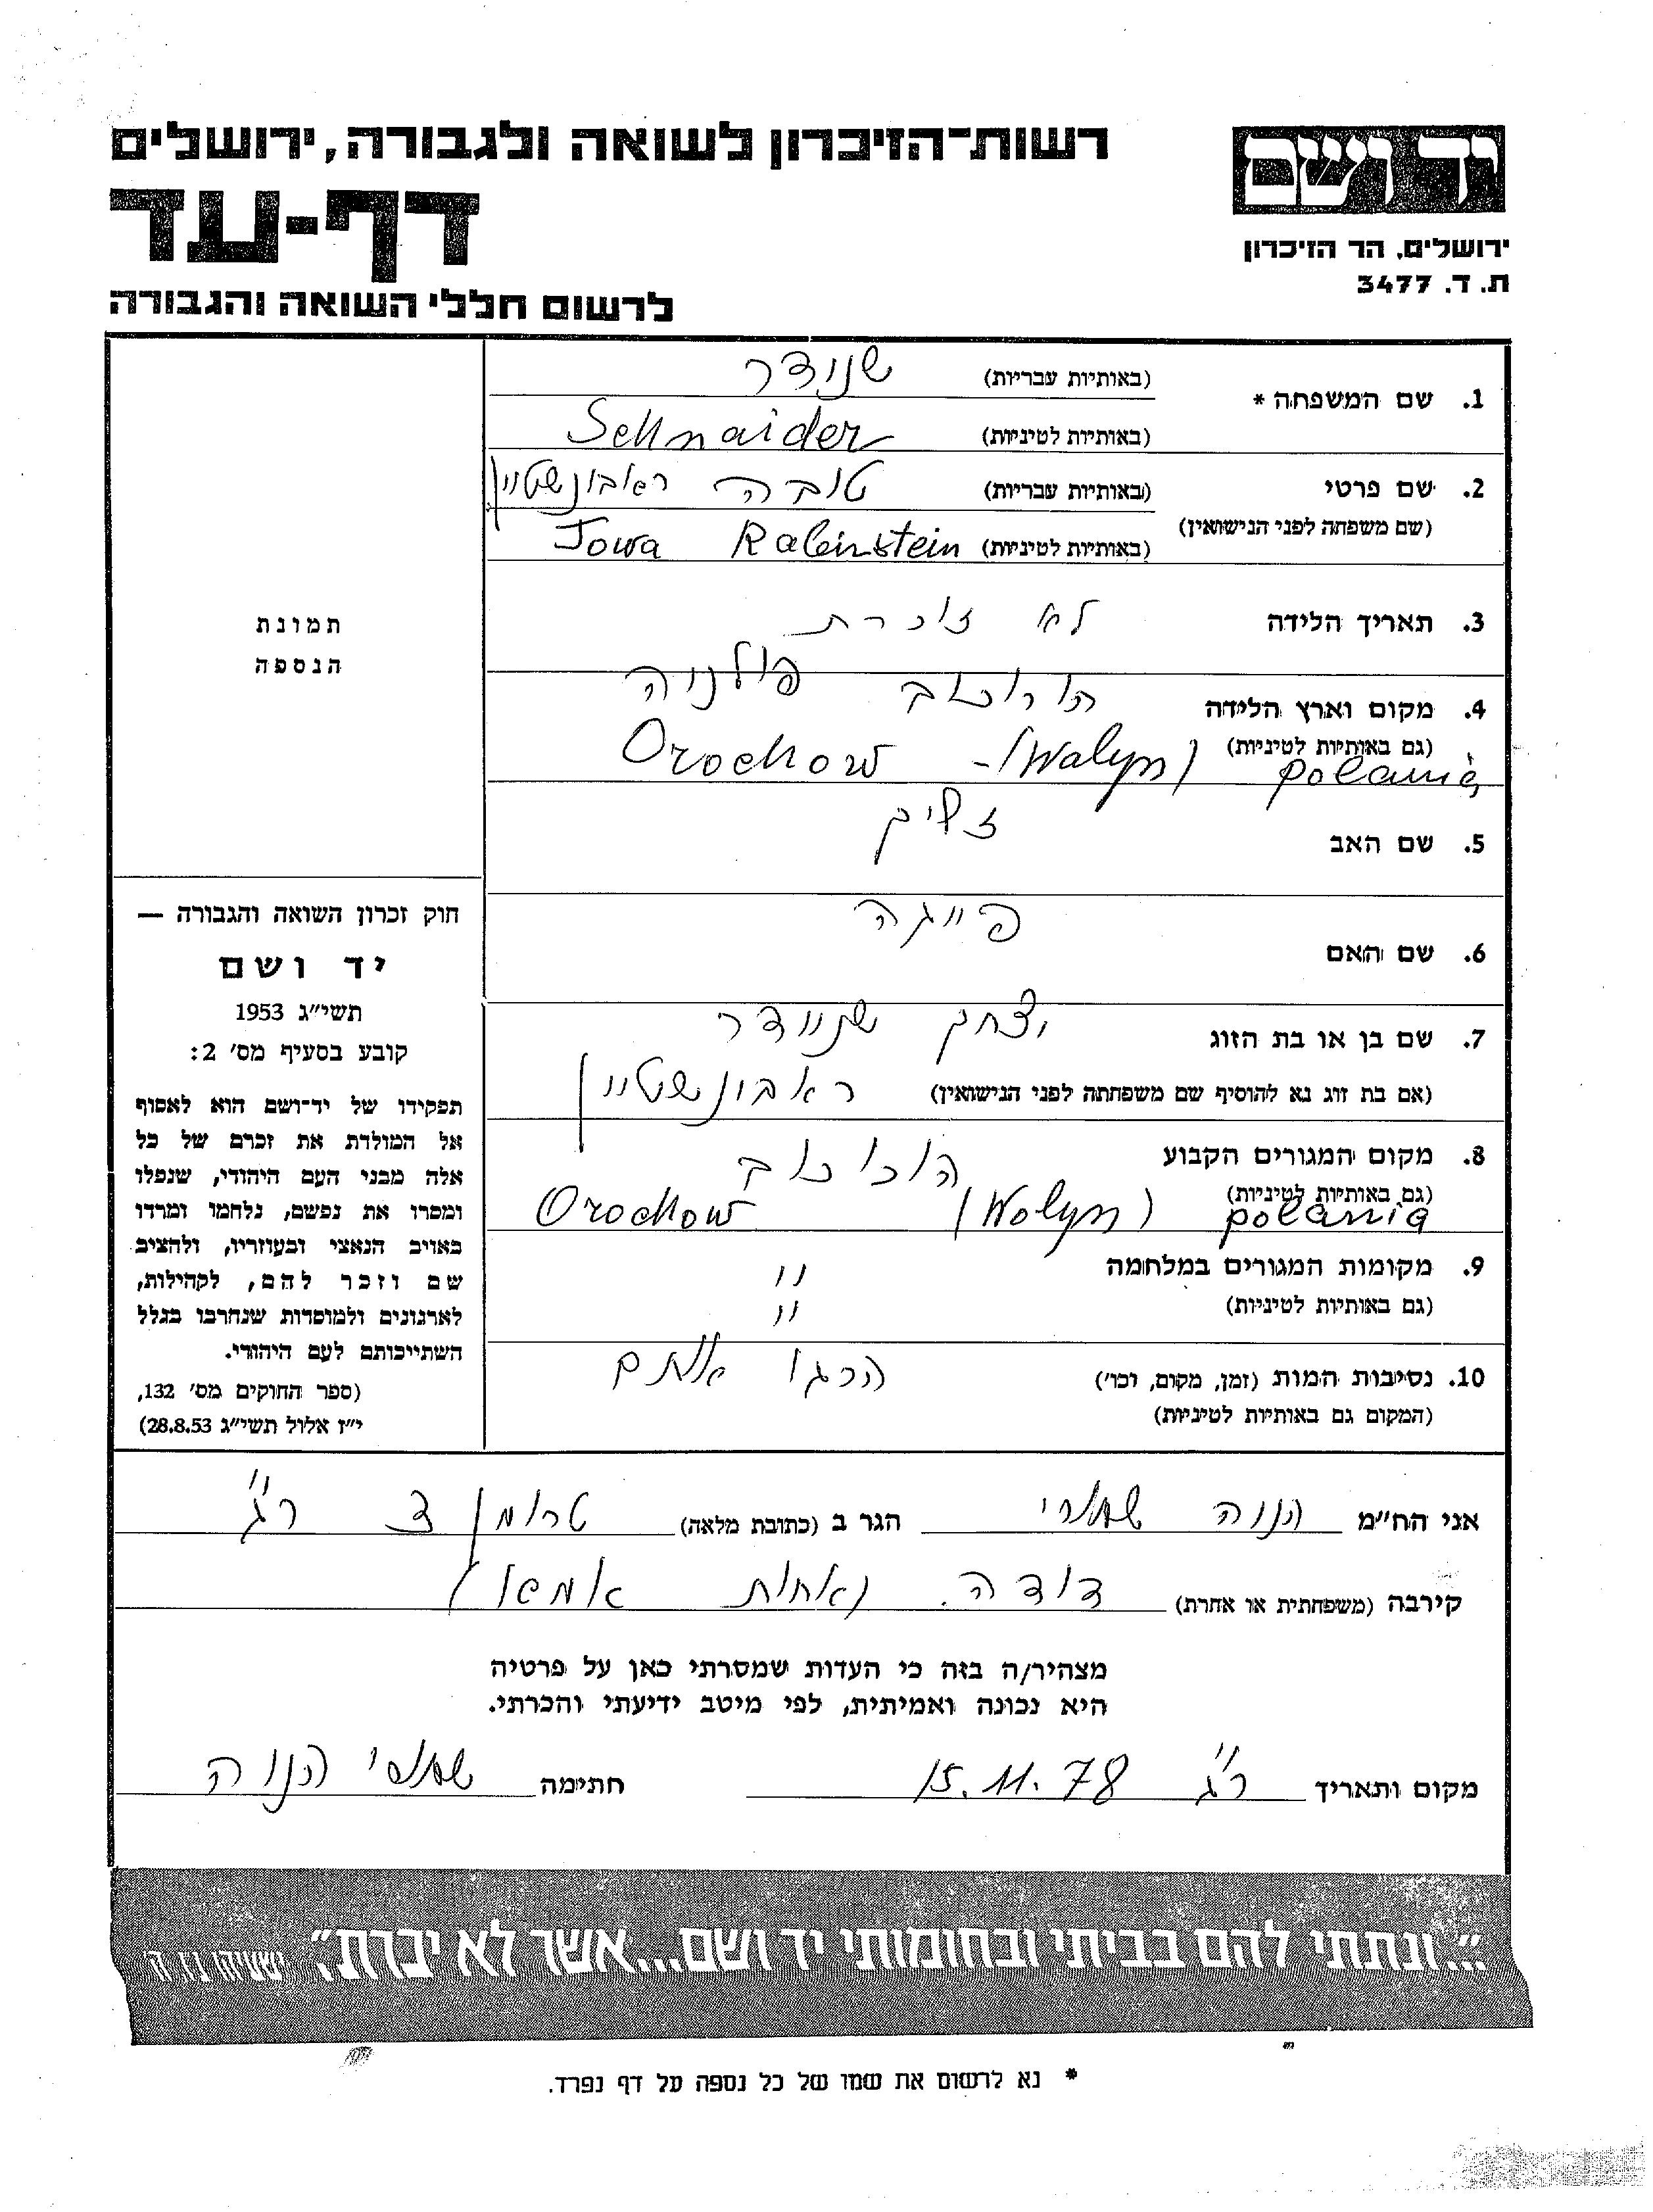 רשות-הזיכרון לשואה ולגבורה, ירושלים
יד ושם
דף-עד
ירושלים, הר הזיכרון
ת. ד. 3477
לרשום חללי השואה והגבורה
1. שם המשפחה *
(באותיות עבריות) שנידר
(באותיות לטיניות) Schnaider
2. שם פרטי
(שם משפחה לפני הנישואין)
(באותיות עבריות) טובה ראבינשטיין
(באותיות לטיניות) Towa Rabinstein
3. תאריך הלידה לא זוכרת
4. מקום וארץ הלידה הורוכוב פולניה
(גם באותיות לטיניות) Orochow - (Walyn) polania
5. שם האב זליק
6. שם האם פייגה
7. שם בן או בת הזוג יצחק שניידר
(אם בת זוג נא להוסיף שם משפחתה לפני הנישואין) ראבינשטיין
8. מקום המגורים הקבוע
(גם באותיות לטיניות) Orochow (Wolyn) polania
9. מקומות המגורים במלחמה "
(גם באותיות לטיניות) "
10. נסיבות המות (זמן, מקום, וכו') הרגו אותם
(המקום גם באותיות לטיניות)
תמונת
הנספה
חוק זכרון השואה והגבורה —
יד ושם
תשי"ג 1953
קובע בסעיף מס' 2:
תפקידו של יד-ושם הוא לאסוף
אל המולדת את זכרם של כל
אלה מבני העם היהודי, שנפלו
ומסרו את נפשם, נלחמו ומרדו
באויב הנאצי ובעוזריו, ולהציב
שם וזכר להם, לקהילות,
לארגונים ולמוסדות שנחרבו בגלל
השתייכותם לעם היהודי.
(ספר החוקים מס' 132,
י"ז אלול תשי"ג 28.8.53)
אני הח"מ חנוה הגר ב (כתובת מלאה) טרומן 3 ר"ג
קירבה (משפחתית או אחרת) דודה. אחות
מצהיר/ה בזה כי העדות שמסרתי כאן על פרטיה
היא נכונה ואמיתית, לפי מיטב ידיעתי והכרתי.
מקום ותאריך ר"ג 15.11.78 חתימה חנוה
"...ונתתי להם בביתי ובחומותי יד ושם...אשר לא יכרת". ישעיהו נו, ה'
* נא לרשום את שמו של כל נספה על דף נפרד.